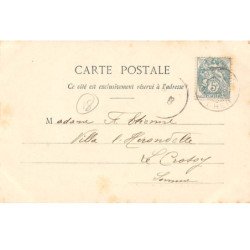 CARTE POSTALE
Ce côté est exclusivement réservé à l'adresse
Madame
Villa l'Hirondelle
Le Crotoy
Somme